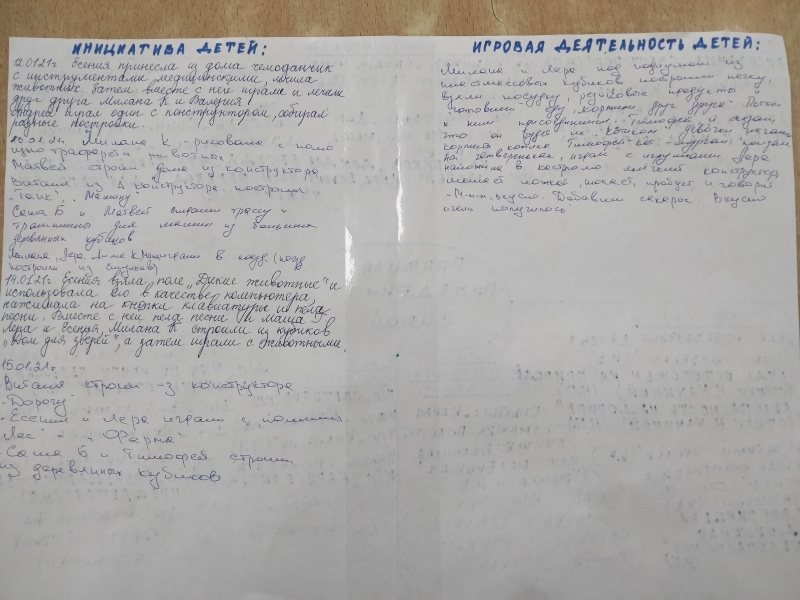 ИНИЦИАТИВА ДЕТЕЙ:
12.01.21г Есения принесла из дома чемоданчик
с инструментами медицинскими, лечила
животных. Затем вместе с ней играли и лечили
друг друга Милана К и Валерия
Андрей играл один с конструктором, собирал
разные постройки.
13.01.21г. Милана К - рисовала с помо
щью трафарета животных
Матвей строил дома из конструктора
Виталя из конструктора построил
"Танк", Машину
Саша Б и Матвей строили трассу и
для машин из больших
деревянных кубиков
Милана, Лера, Анна К, Маша играли в поезд (поезд
построили из стульчиков)
14.01.21г. Есения взяла поле "Дикие животные" и
использовала его в качестве компьютера,
нажимала на кнопки клавиатуры и пела
песни. Вместе с ней пела песни и Маша
Лера и Есения, Милана К строили из кубиков
"Дом для зверей", а затем играли с животными.
15.01.21г.
Виталя строил из конструктора
"Дорогу"
- Есения и Лера играли с
Лес" и "Ферма"
- Саша Б и Тимофей строили
из деревянных кубиков
ИГРОВАЯ ДЕЯТЕЛЬНОСТЬ ДЕТЕЙ:
Милана и Лера под горкой из
пластмассовых кубиков построили печку,
взяли посудку, резиновые продукты и
готовили еду, кормили друг друга. Потом
к ним присоединился Тимофей и сказал,
что он будет их "Котиком" девочки
кормили котика Тимофей-кот
на четвереньках, играл с игрушками Лера
наложила в кастрюлю мягкий конструктор,
мешает ложкой, пробует и говорит
- М-м-м, вкусно. Добавим сахарок. Вкусно
очень получилось"